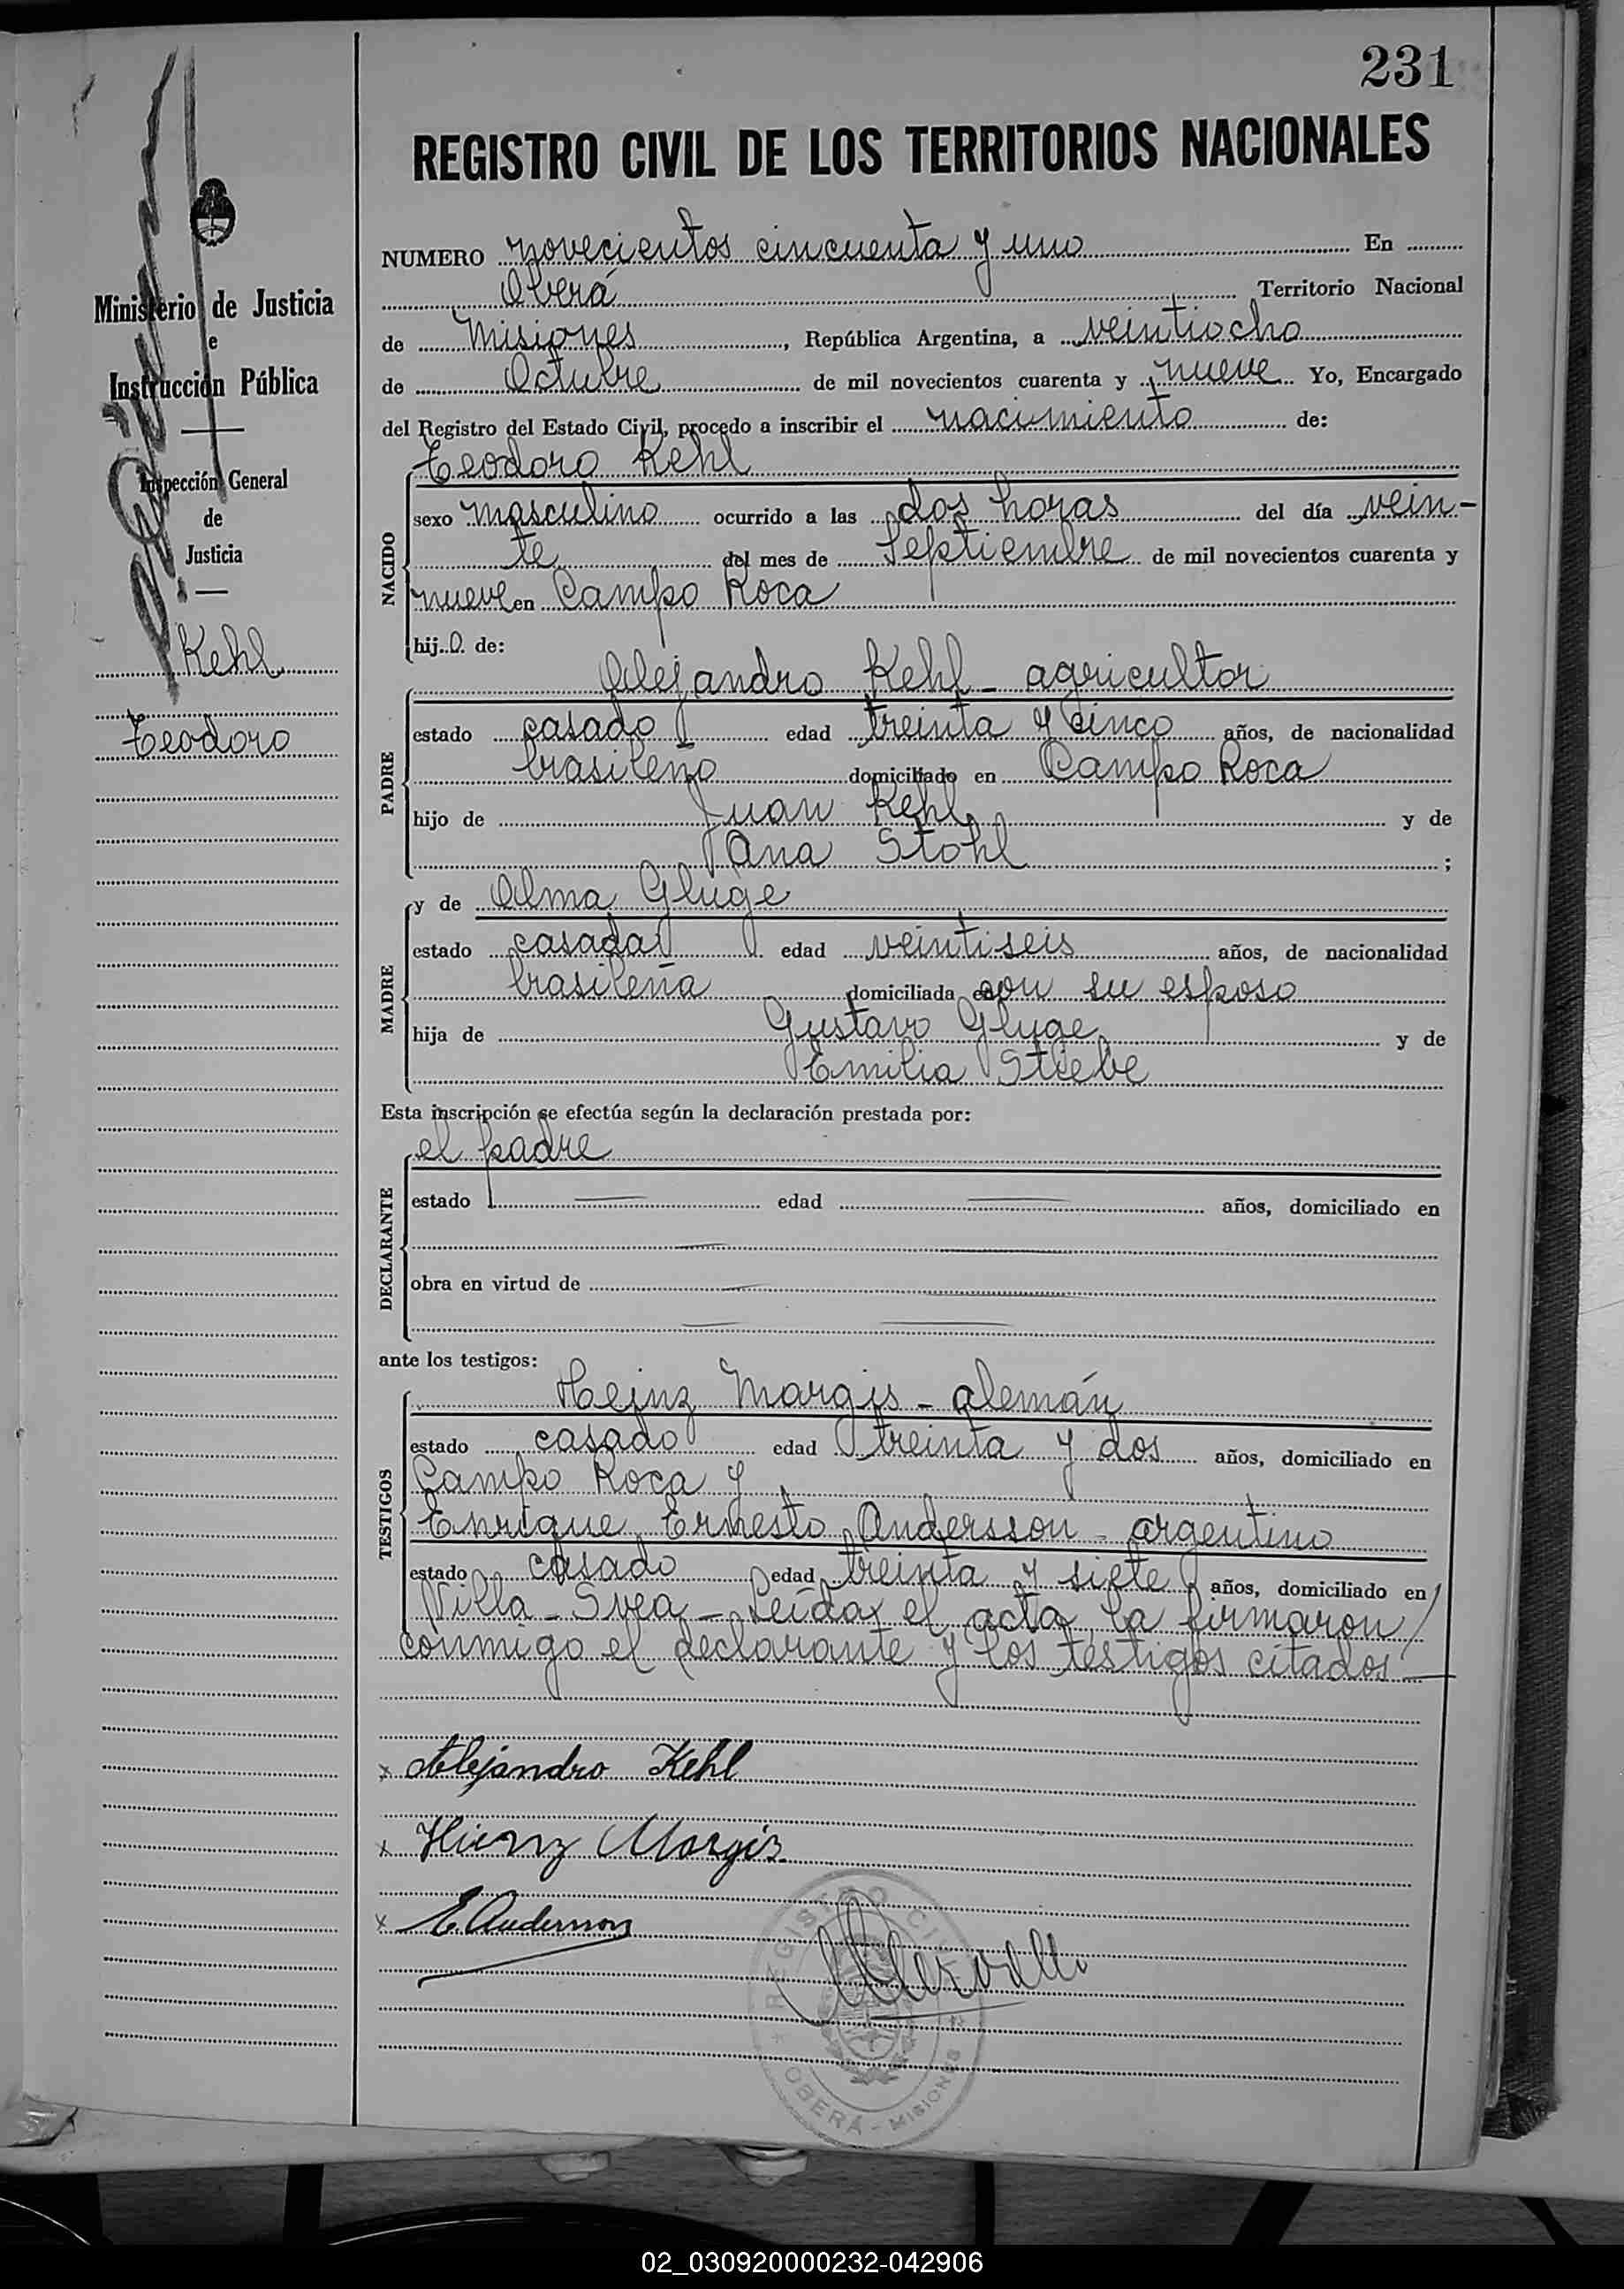 231
REGISTRO CIVIL DE LOS TERRITORIOS NACIONALES
Ministerio de Justicia
e
Instrucción Pública
Inspección General
de
Justicia
Kehl
Teodoro
NUMERO novecientos cincuenta y uno En
Oberá Territorio Nacional
de Misiones, República Argentina, a veintiocho
de Octubre de mil novecientos cuarenta y nueve Yo, Encargado
del Registro del Estado Civil, procedo a inscribir el nacimiento de:
NACIDO
Teodoro Kehl
sexo masculino ocurrido a las dos horas del día vein-
te del mes de Septiembre de mil novecientos cuarenta y
nueve en Campo Roca
hijo de:
PADRE
Alejandro Kehl - agricultor
estado casado edad treinta y cinco años, de nacionalidad
brasileño domiciliado en Campo Roca
hijo de Juan Kehl y de
Ana Stohl ;
MADRE
y de Alma Gluge
estado casada edad veintiseis años, de nacionalidad
brasileña domiciliada con su esposo
hija de Gustavo Gluge y de
Emilia Stiebe
Esta inscripción se efectúa según la declaración prestada por:
DECLARANTE
el padre
estado edad años, domiciliado en
obra en virtud de
ante los testigos:
TESTIGOS
Heinz Margis - alemán
estado casado edad treinta y dos años, domiciliado en
Campo Roca y
Enrique Ernesto Andersson - argentino
estado casado edad treinta y siete años, domiciliado en
Villa - Svea - Leída el acta la firmaron
conmigo el declarante y los testigos citados.
x Alejandro Kehl
x Hienz Margis
x E. Andersson
REGISTRO CIVIL
OBERÁ - MISIONES
02_030920000232-042906